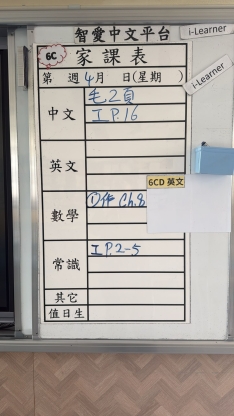 智愛中文平台
i-Learner
6C 家課表
i-Learner
第 週 4月 日(星期 )
中文 毛2頁
工P.16
英文
6CD 英文
數學 ①作 Ch.8
常識 工P.2-5
其它
值日生